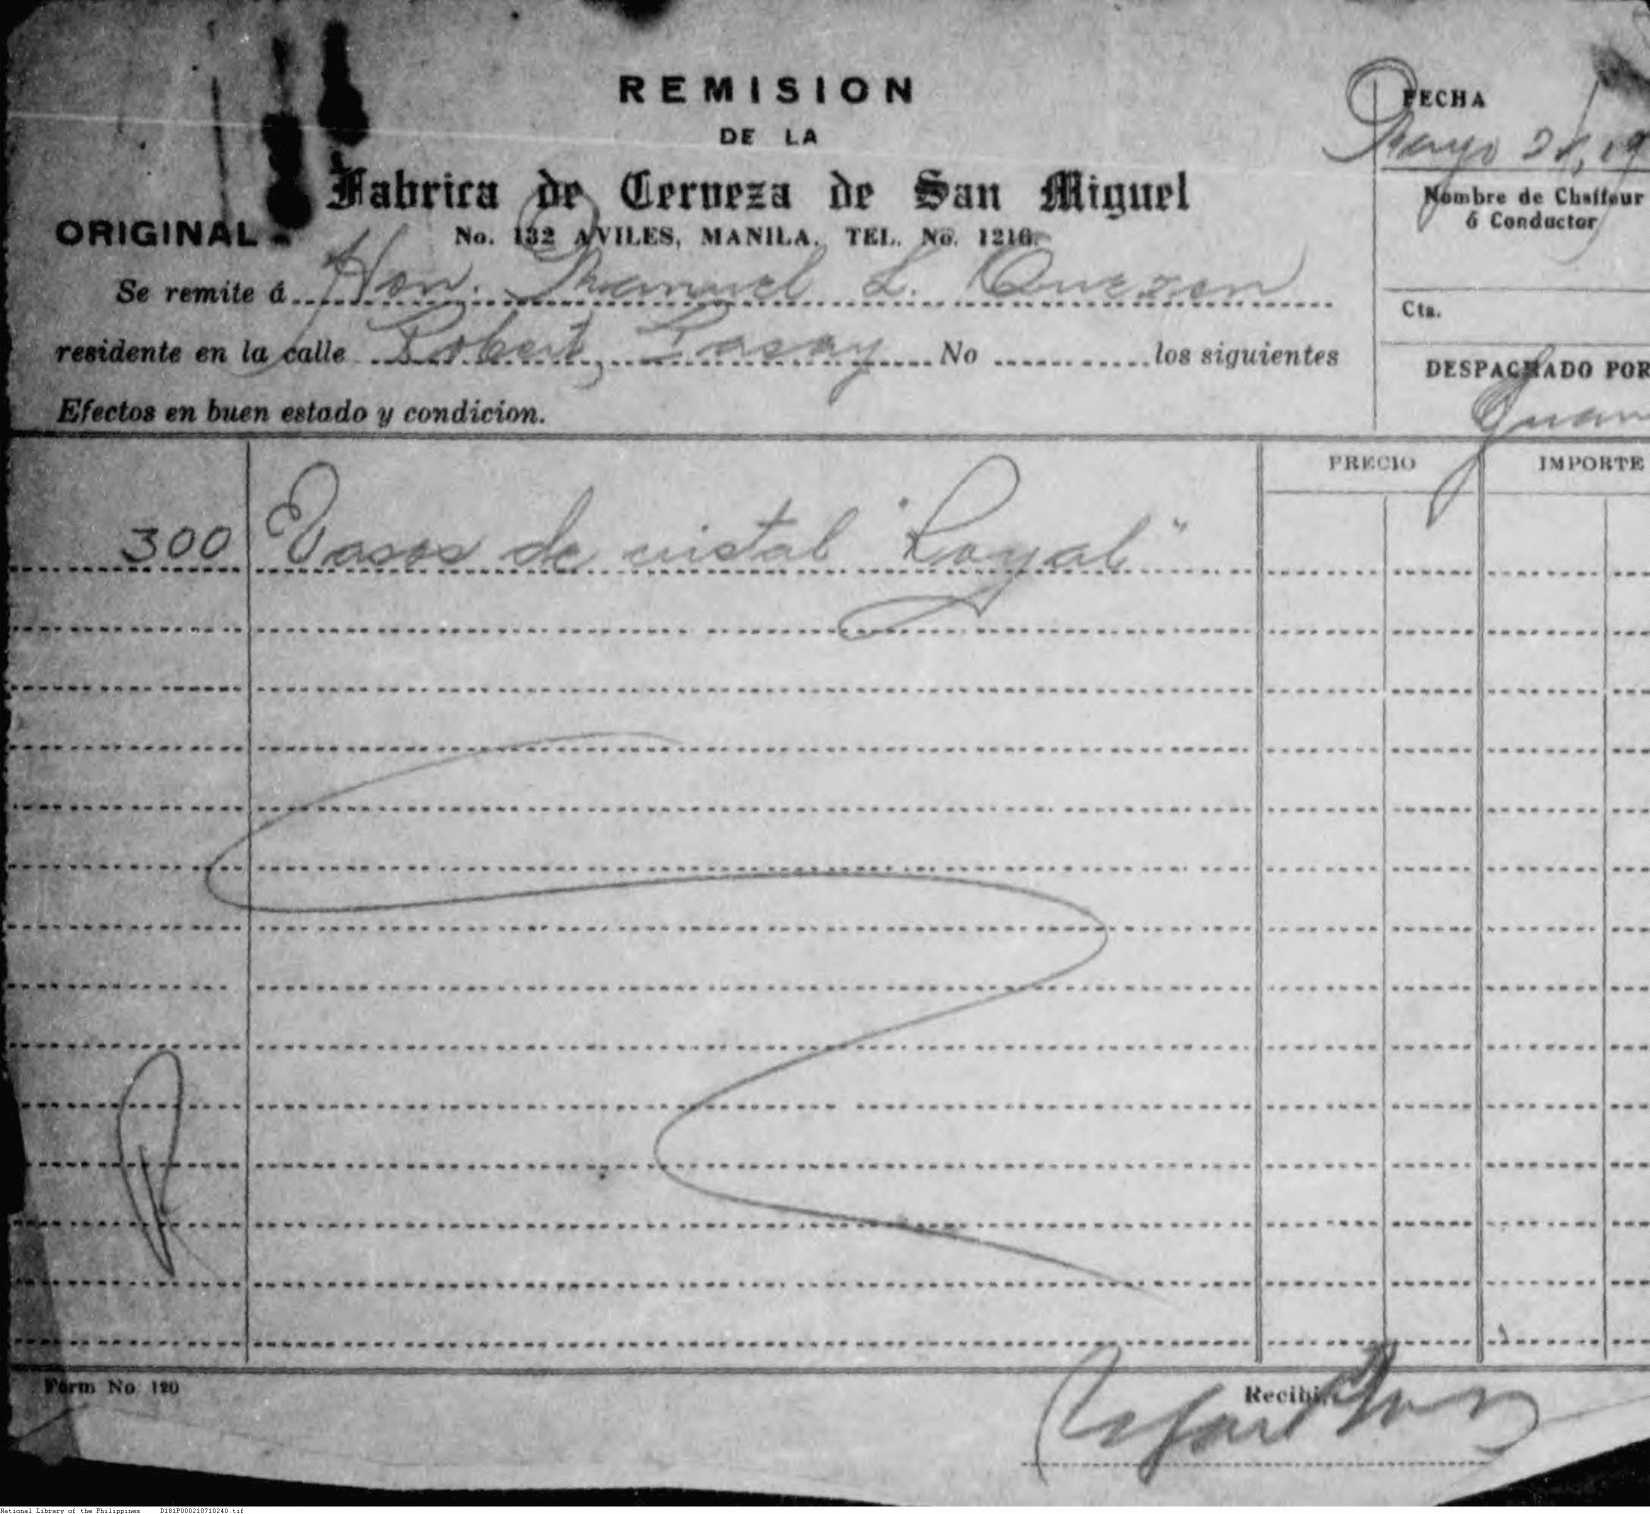 REMISION
DE LA
Fabrica de Cerveza de San Miguel
No. 132 AVILES, MANILA. TEL. No. 1216.
ORIGINAL
FECHA
Mayo 28, 19
Nombre de Chaffeur
ó Conductor
Cta.
DESPACHADO POR
Juan
Se remite á Hon. Manuel L. Quezon
residente en la calle Robert, Pasay No los siguientes
Efectos en buen estado y condicion.
PRECIO IMPORTE
300 Vasos de cristal "Royal"
Form No. 120
Recibí
National Library of the Philippines D181P000210710240.tif